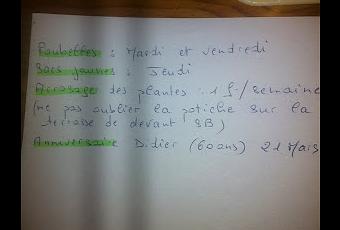 Poubelles : Mardi et vendredi
Sacs jaunes : Jeudi
Arrosage des plantes : 1 f./semaine
(ne pas oublier la potiche sur la
terrasse de devant SB)
Anniversaire Didier (60 ans) 21 Mars